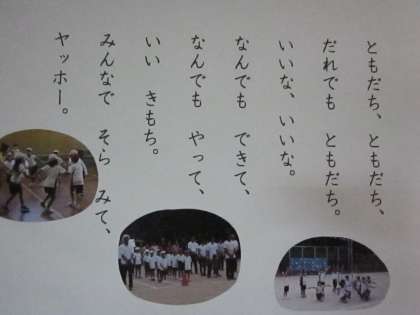 ともだち、ともだち、
だれでも ともだち。
いいな、いいな。
なんでも できて、
なんでも やって、
いい きもち。
みんなで そら みて、
ヤッホー。